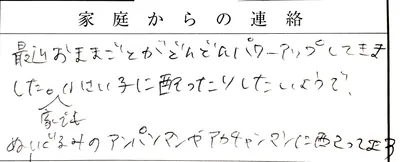 家庭からの連絡
最近おままごとがどんどんパワーアップしてきま
した。小さい子に配ったりしたいようで、
家でも
ぬいぐるみのアンパンマンやアカチャンマンに配ってます